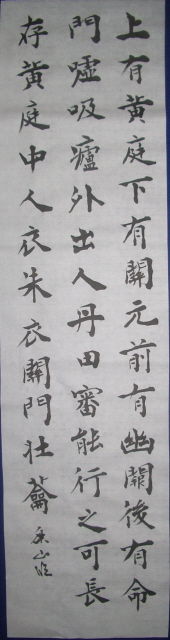 上有黄庭下有關元前有幽闕後有命
門嘘吸廬外出入丹田審能行之可長
存黄庭中人衣朱衣關門壮蘥山臨